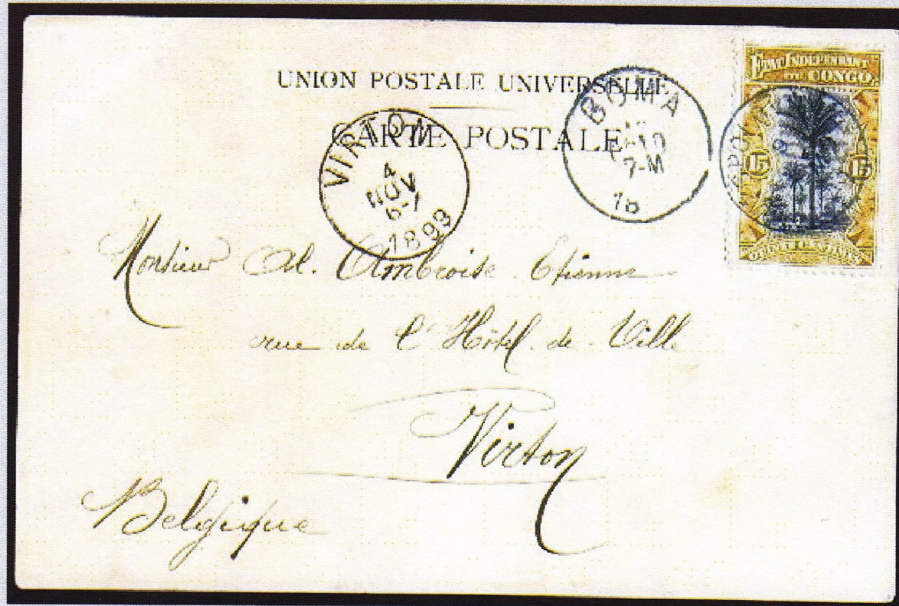 UNION POSTALE UNIVERSELLE
CARTE POSTALE
VIRTON
4
NOV
6-7
1899
BOMA
7-M
18
ETAT INDEPENDANT
DU CONGO
15 15
QUINZE CENTIMES
Monsieur Al. Ambroise Etienne
rue de l'Hôtel de Ville
Virton
Belgique